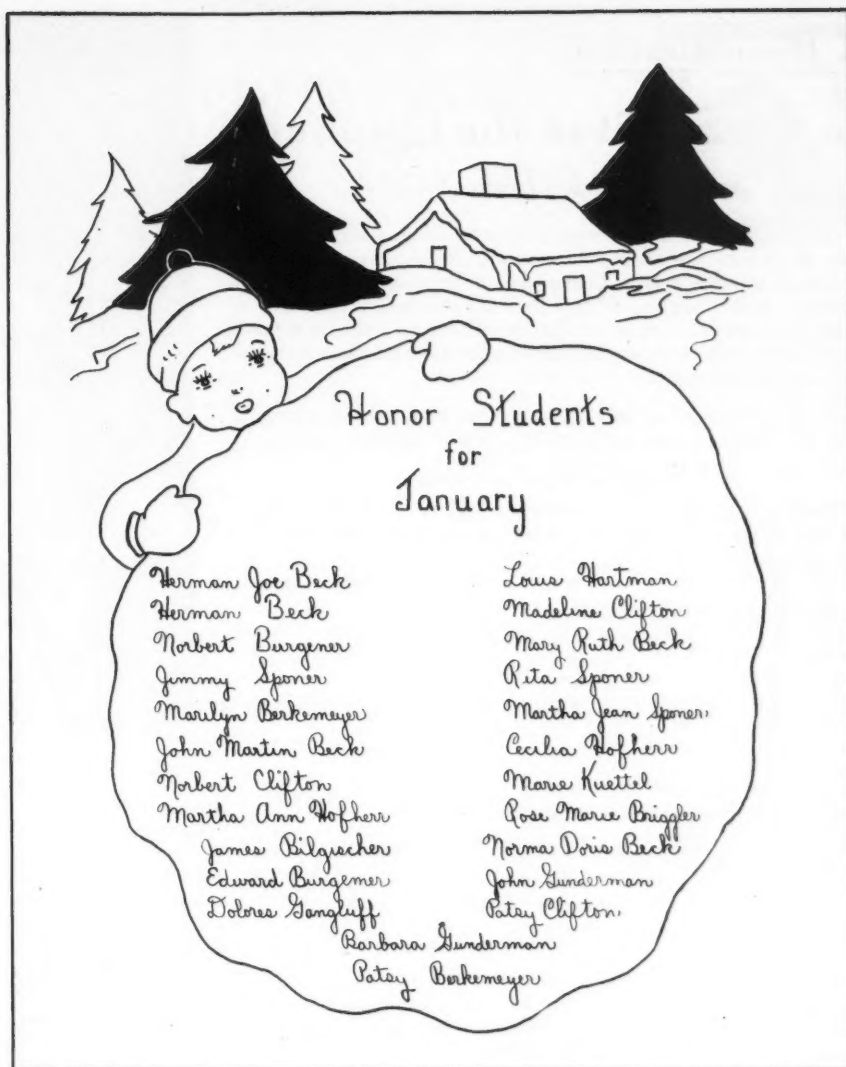 Honor Students
for
January
Herman Joe Beck
Herman Beck
Norbert Burgener
Jimmy Sponer
Marilyn Berkemeyer
John Martin Beck
Norbert Clifton
Martha Ann Hofherr
James Bilgischer
Edward Burgemer
Dolores Gangluff
Louis Hartman
Madeline Clifton
Mary Ruth Beck
Rita Sponer
Martha Jean Sponer
Cecilia Hofherr
Marie Kuettel
Rose Marie Briggler
Norma Doris Beck
John Gunderman
Patsy Clifton
Barbara Gunderman
Patsy Berkemeyer